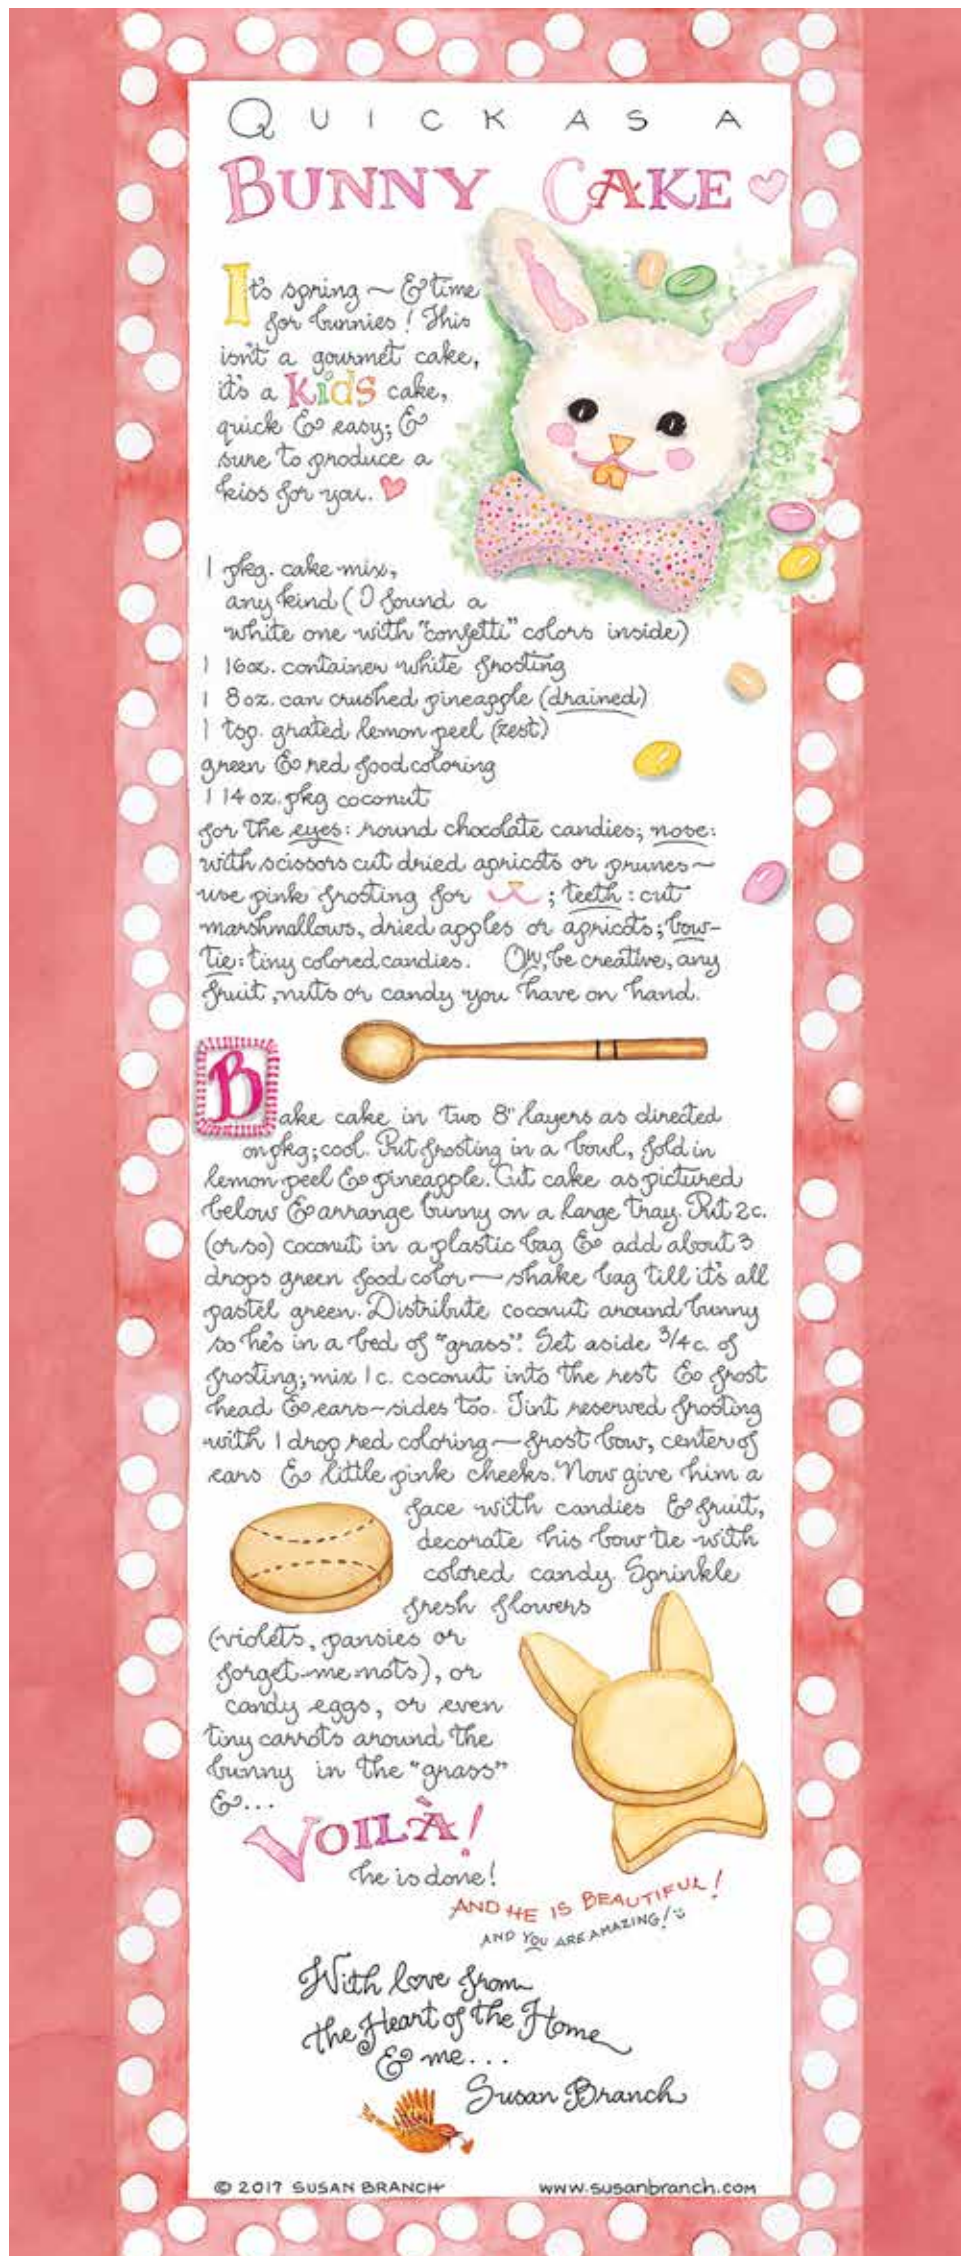 QUICK AS A
BUNNY CAKE
It's spring ~ & time
for bunnies! This
isn't a gourmet cake,
it's a kids cake,
quick & easy; &
sure to produce a
kiss for you.
1 pkg. cake mix,
any kind (I found a
white one with "confetti" colors inside)
1 16oz. container white frosting
1 8 oz. can crushed pineapple (drained)
1 tsp. grated lemon peel (zest)
green & red food coloring
1 14 oz. pkg coconut
for the eyes: round chocolate candies; nose:
with scissors cut dried apricots or prunes~
use pink frosting for ; teeth: cut
marshmallows, dried apples or apricots; bow-
tie: tiny colored candies. OR, be creative, any
fruit, nuts or candy you have on hand.
Bake cake in two 8" layers as directed
on pkg; cool. Put frosting in a bowl, fold in
lemon peel & pineapple. Cut cake as pictured
below & arrange bunny on a large tray. Put 2c.
(or so) coconut in a plastic bag & add about 3
drops green food color — shake bag till it's all
pastel green. Distribute coconut around bunny
so he's in a bed of "grass". Set aside 3/4 c. of
frosting; mix 1 c. coconut into the rest & frost
head & ears~sides too. Tint reserved frosting
with 1 drop red coloring — frost bow, center of
ears & little pink cheeks. Now give him a
face with candies & fruit,
decorate his bow tie with
colored candy. Sprinkle
fresh flowers
(violets, pansies or
forget-me-nots), or
candy eggs, or even
tiny carrots around the
bunny in the "grass"
&...
VOILÀ!
he is done!
AND HE IS BEAUTIFUL!
AND YOU ARE AMAZING!
With love from
the Heart of the Home
& me...
Susan Branch
© 2017 SUSAN BRANCH
www.susanbranch.com